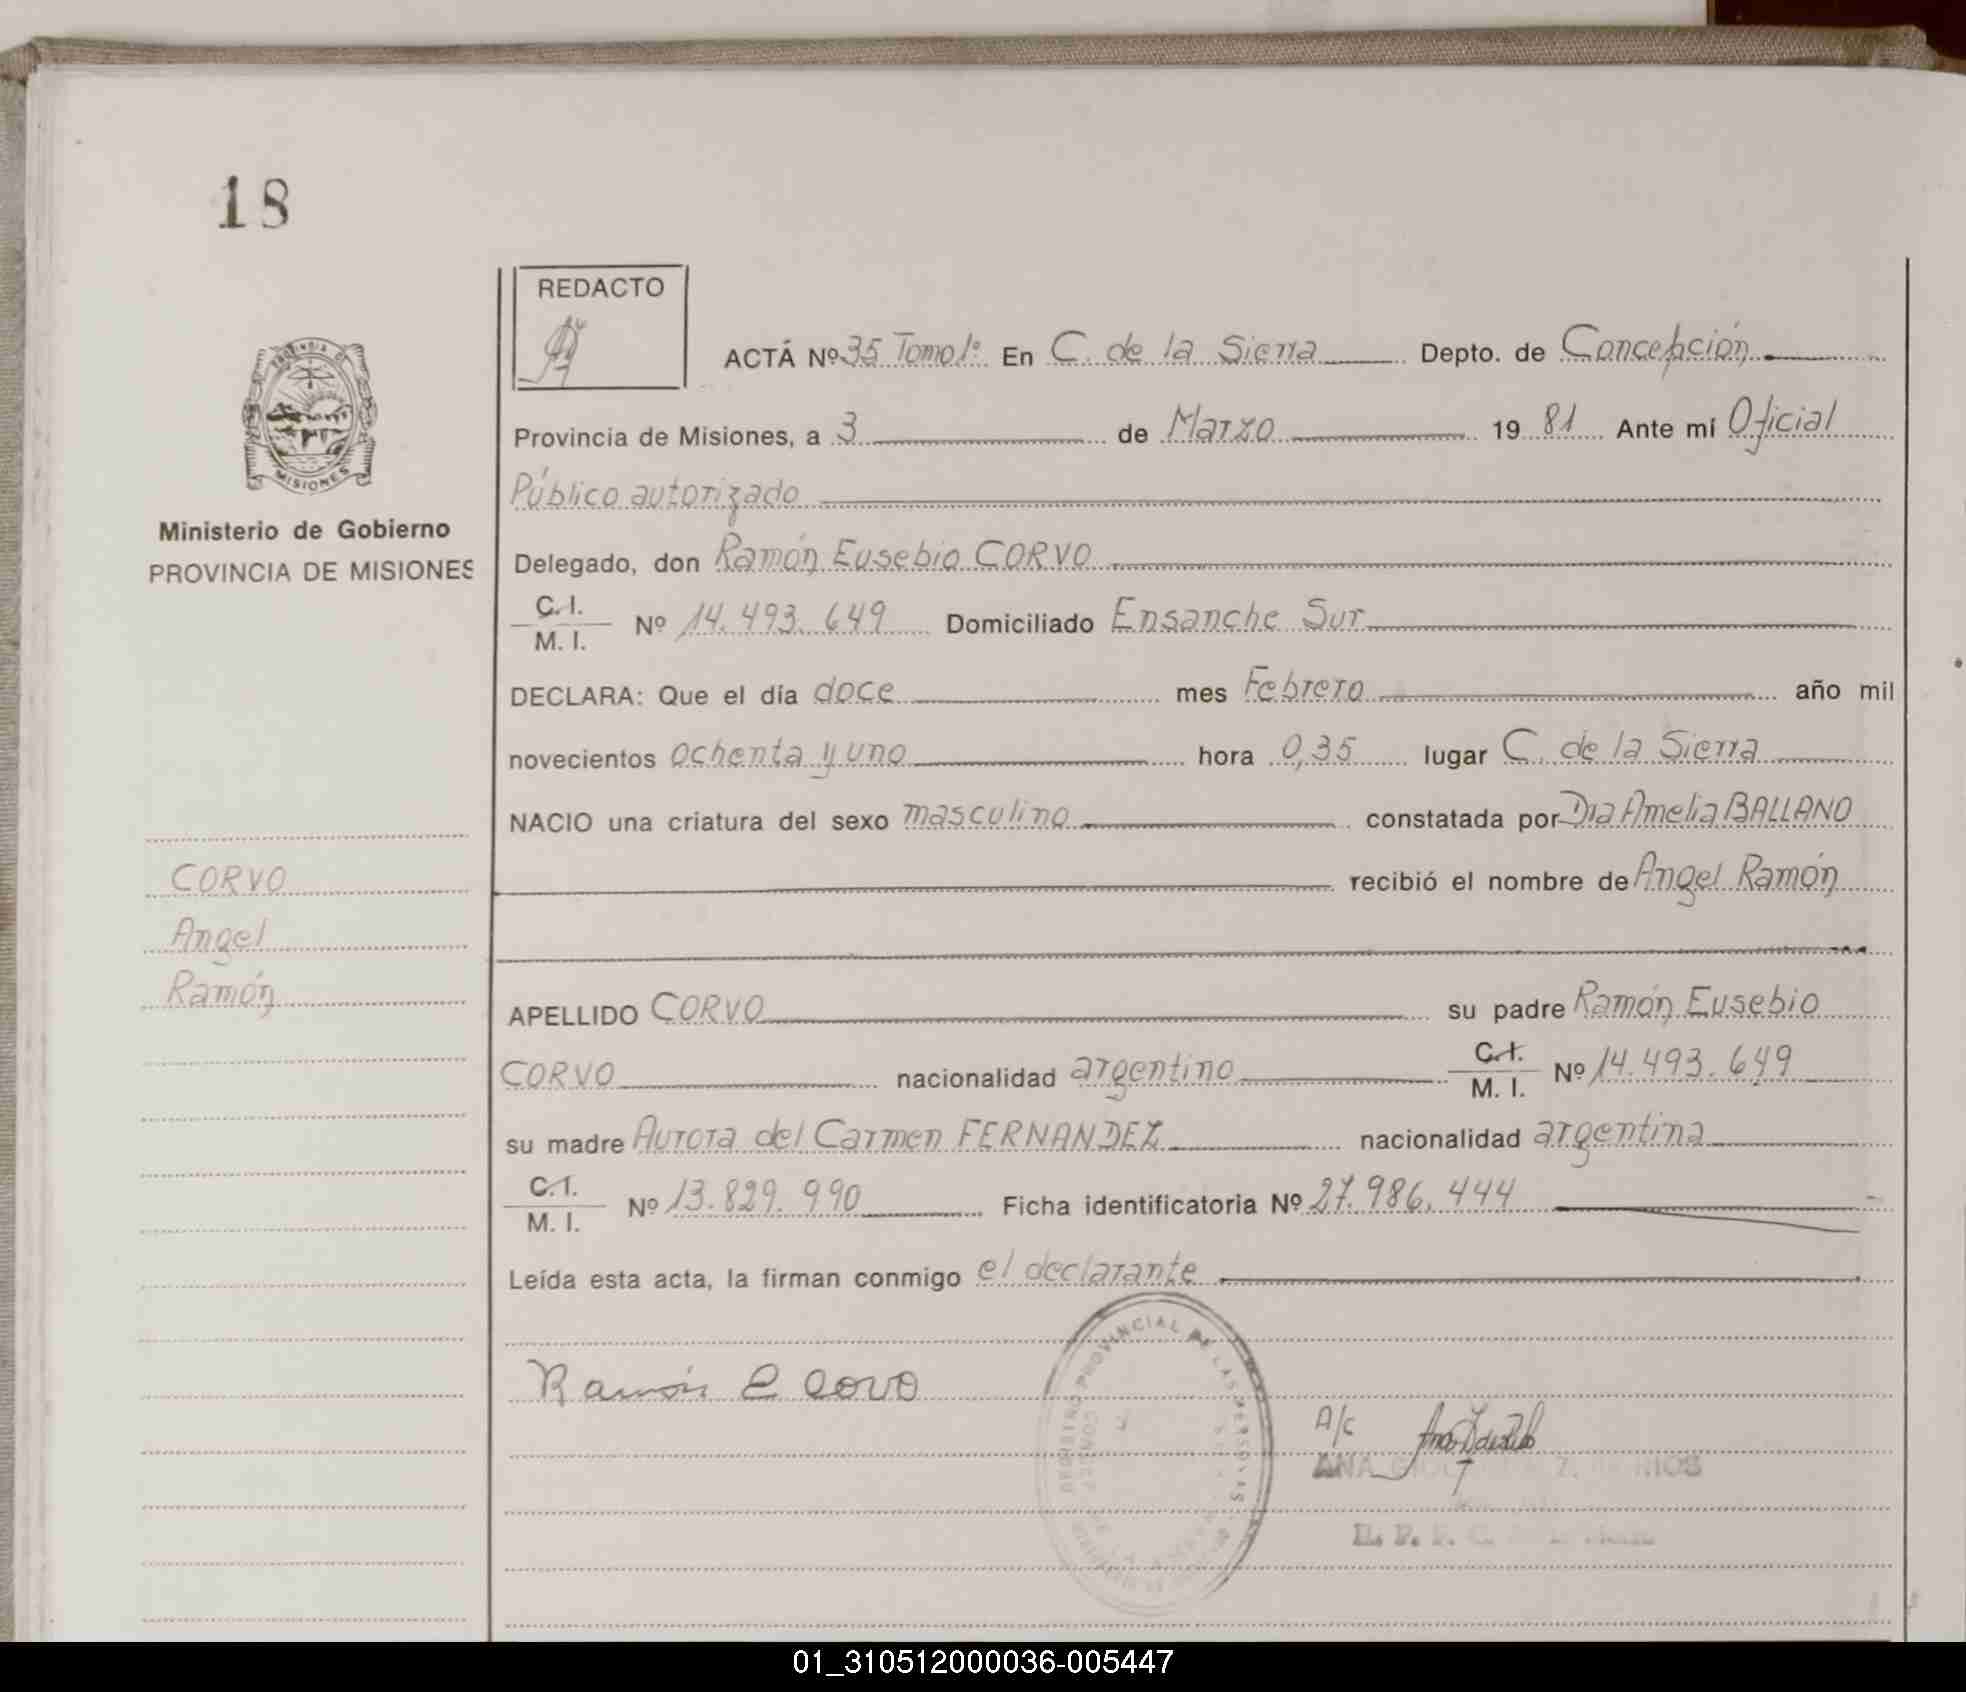 18
REDACTO
ACTA Nº 35 Tomo 1º En C. de la Sierra Depto. de Concepción
Provincia de Misiones, a 3 de Marzo 19 81 Ante mí Oficial
Público autorizado
PROVINCIA DE
MISIONES
Ministerio de Gobierno
PROVINCIA DE MISIONES
Delegado, don Ramón Eusebio CORVO
C. I.
M. I. Nº 14.493.649 Domiciliado Ensanche Sur
DECLARA: Que el día doce mes Febrero año mil
novecientos ochenta y uno hora 0,35 lugar C. de la Sierra
NACIO una criatura del sexo masculino constatada por Dra Amelia BALLANO
recibió el nombre de Angel Ramón
CORVO
Angel
Ramón
APELLIDO CORVO su padre Ramón Eusebio
CORVO nacionalidad argentino C. I.
M. I. Nº 14.493.649
su madre Aurora del Carmen FERNANDEZ nacionalidad argentina
C. I.
M. I. Nº 13.829.990 Ficha identificatoria Nº 27.986.444
Leída esta acta, la firman conmigo el declarante
Ramón E Corvo
PROVINCIAL DE LAS PERSONAS
A/c
ANA
01_310512000036-005447